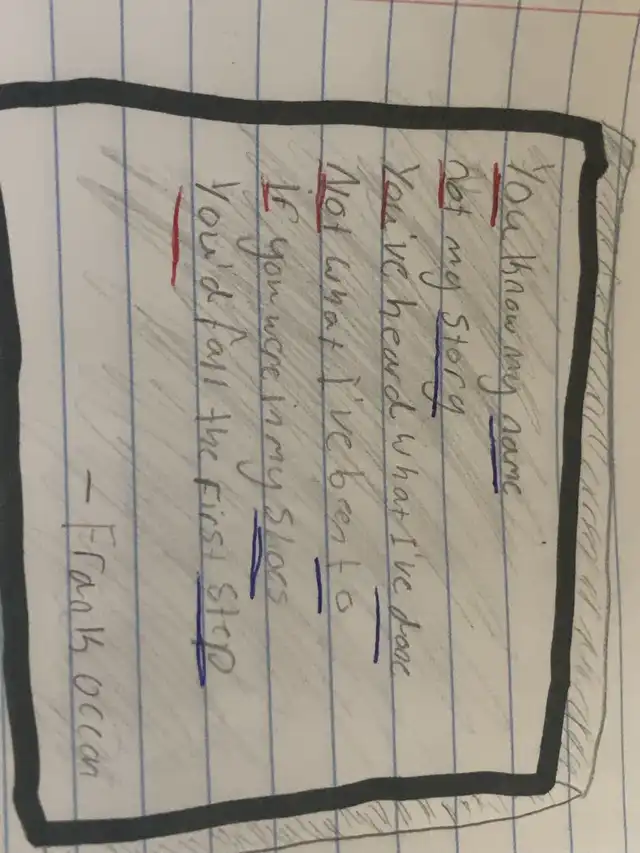 You know my name
not my story
You've heard what I've done
Not what I've been to
If you were in my shoes
You'd fall the First step
- Frank ocean